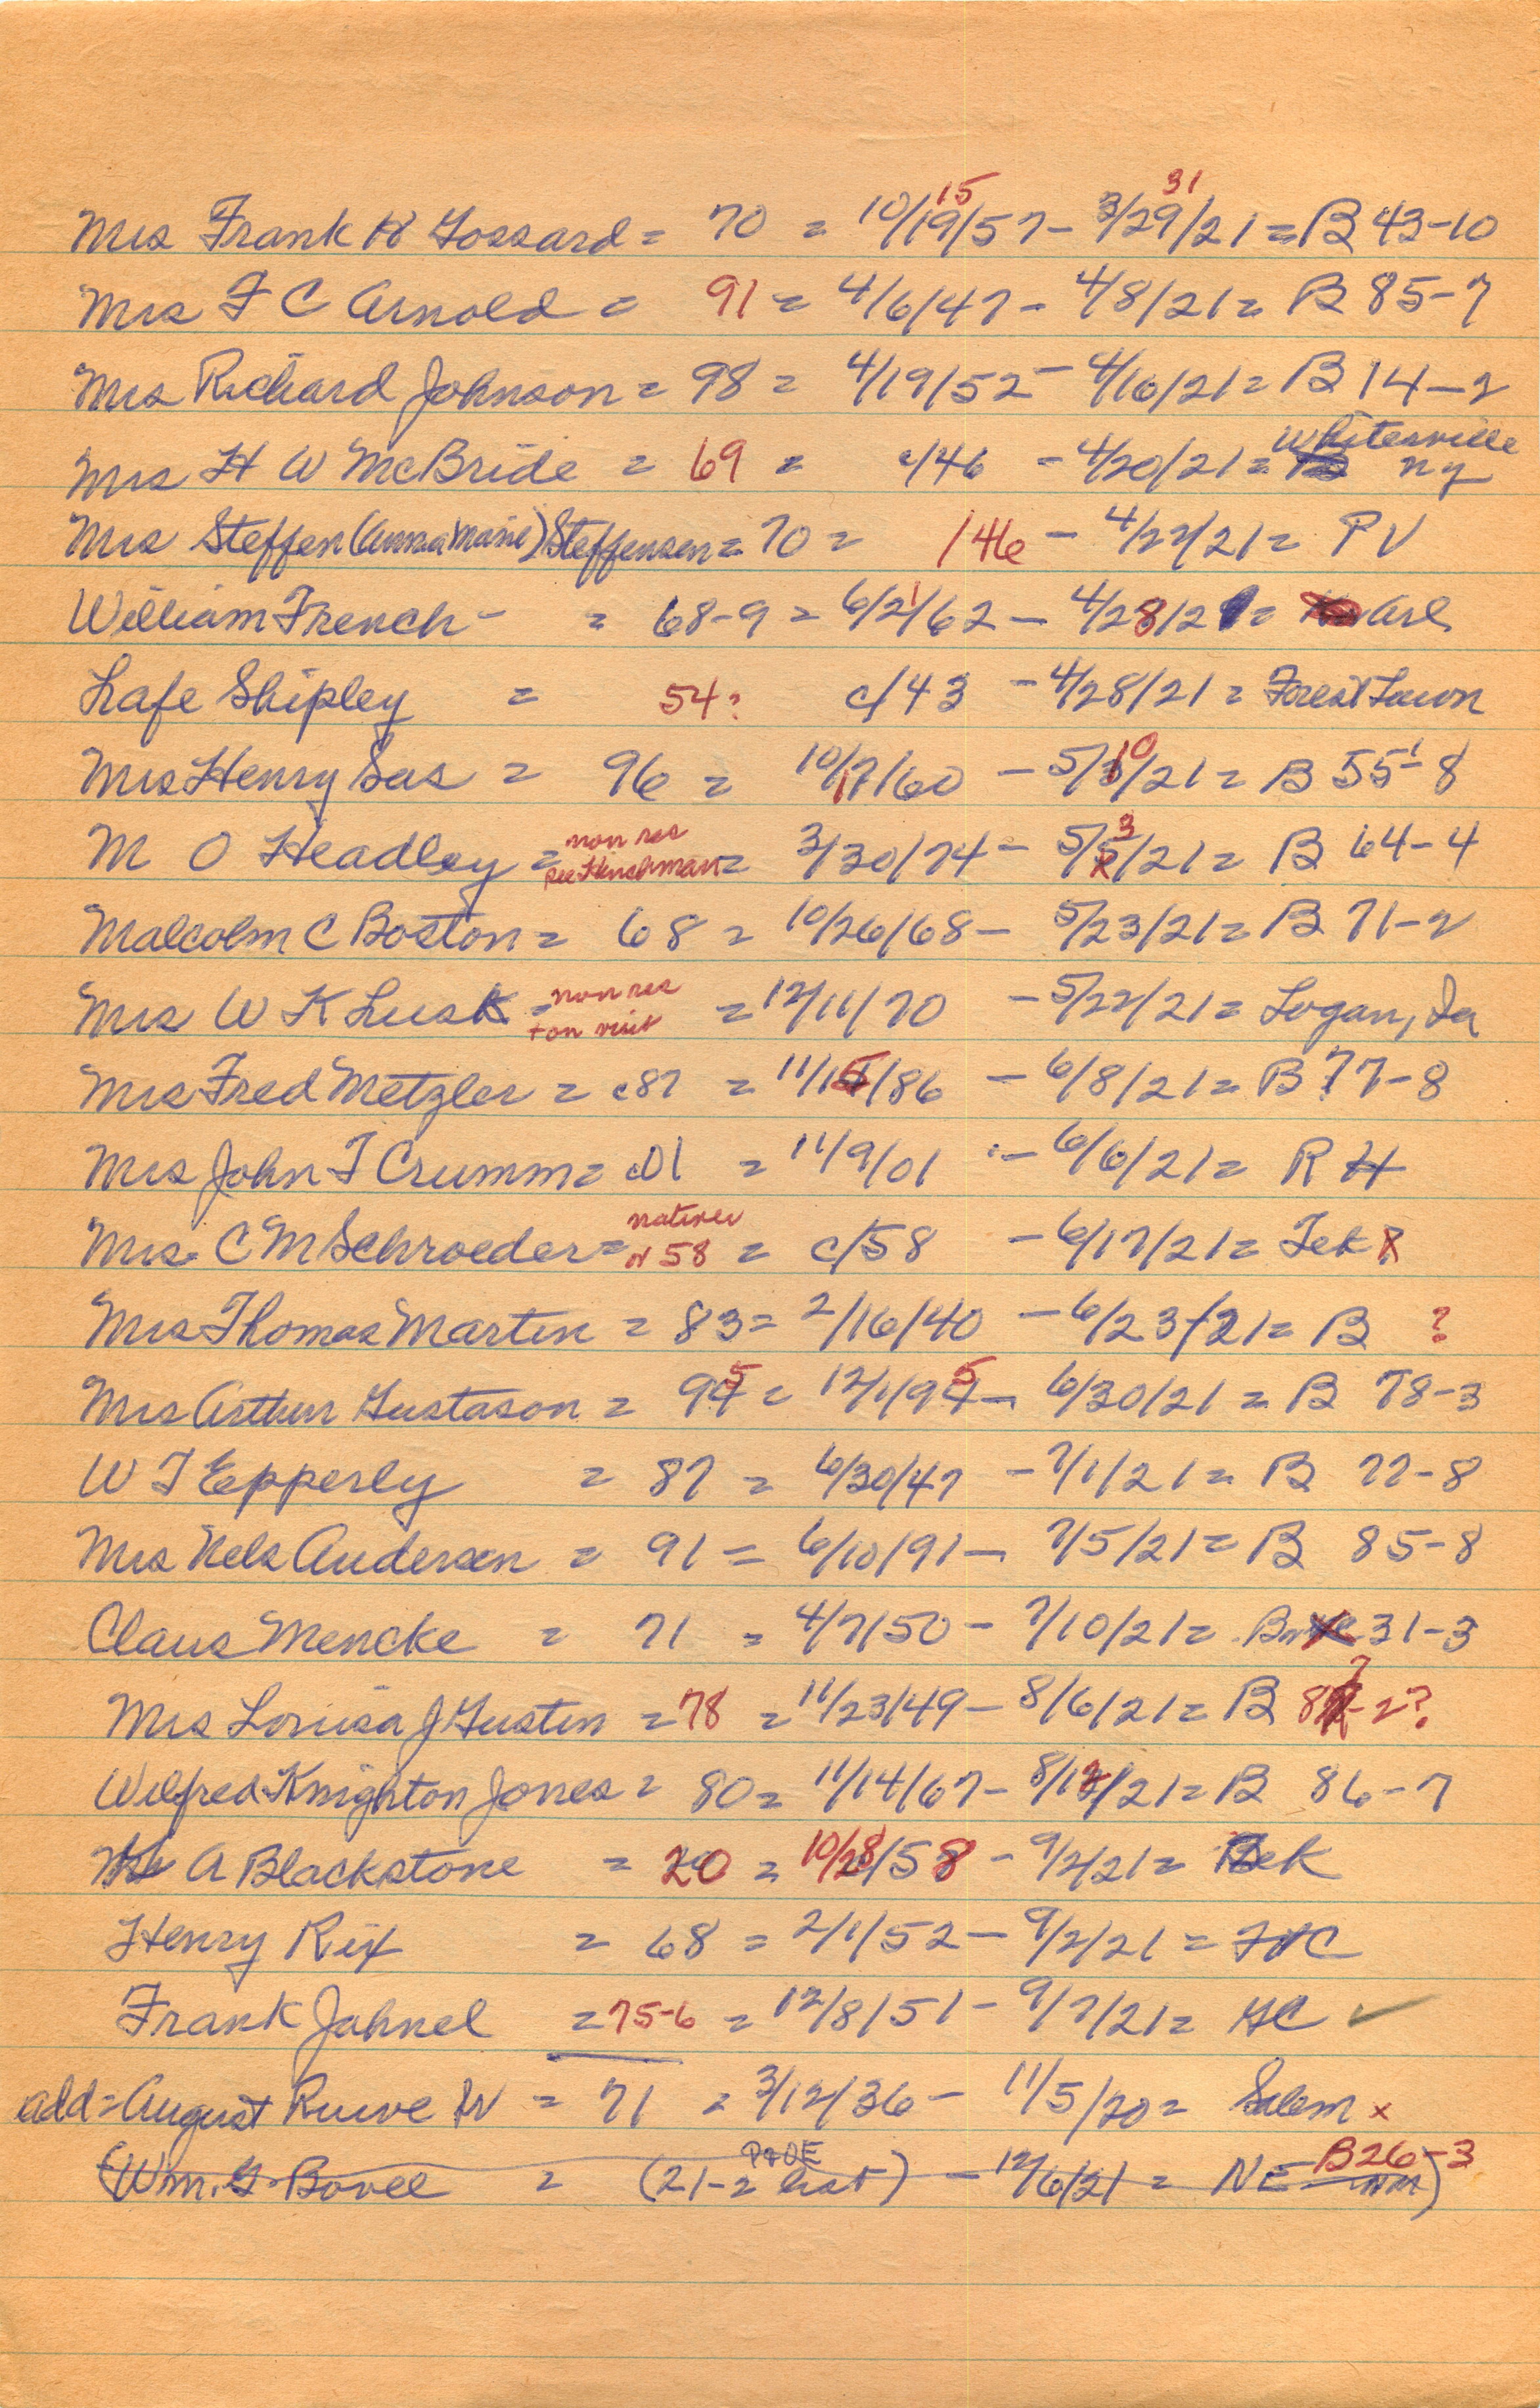 15 31
Mrs Frank H Gossard = 70 = 10/19/57 - 3/29/21 = B 43-10
Mrs F C Arnold = 91 = 4/6/47 - 4/8/21 = B 85-7
Mrs Richard Johnson = 98 = 4/19/52 - 4/10/21 = B 14-2
Whitesville
Mrs H W McBride = 69 = c/46 - 4/20/21 = NY
Mrs Steffen (Anna Marie) Steffensen = 70 = /46 - 4/22/21 = PV
William French - = 68-9 = 6/21/62 - 4/28/21 = Arl
Lafe Shipley = 54? c/43 - 4/28/21 = Forest Lawn
Mrs Henry Sas = 96 = 10/17/60 - 5/10/21 = B 55-8
non res 3
M O Headley = see Henchman = 3/30/74 - 5/5/21 = B 64-4
Malcolm C Boston = 68 = 10/26/68 - 5/23/21 = B 71-2
non res
Mrs W K Lusk = + on visit = 12/11/70 - 5/22/21 = Logan, Ia
Mrs Fred Metzler = c87 = 11/15/86 - 6/8/21 = B 77-8
Mrs John F Crumm = c01 = 11/9/01 - 6/6/21 = R H
native
Mrs. C M Schroeder = or 58 = c/58 - 6/17/21 = Tek
Mrs Thomas Martin = 83 = 2/16/40 - 6/23/21 = B ?
Mrs Arthur Gustason = 95 = 12/1/95 - 6/30/21 = B 78-3
W T Epperly = 87 = 6/30/47 - 7/1/21 = B 77-8
Mrs Nels Andersen = 91 = 6/10/91 - 7/5/21 = B 85-8
Claus Mencke = 71 = 4/7/50 - 7/10/21 = B 31-3
Mrs Louisa J Gustin = 78 = 11/23/49 - 8/6/21 = B 8 -2?
Wilfred Knighton Jones = 80 = 11/14/67 - 8/12/21 = B 86-7
A Blackstone = 20 = 10/28/58 - 9/2/21 = Tek
Henry Rix = 68 = 2/1/52 - 9/2/21 =
Frank Jahnel = 75-6 = 12/8/51 - 9/7/21 = HC ✓
add = August Ruwe = 71 = 3/12/36 - 11/5/20 = Salem x
P+OE B26-3
(Wm. G. Bovee = (21-2 list) - 12/6/21 = NE NM)